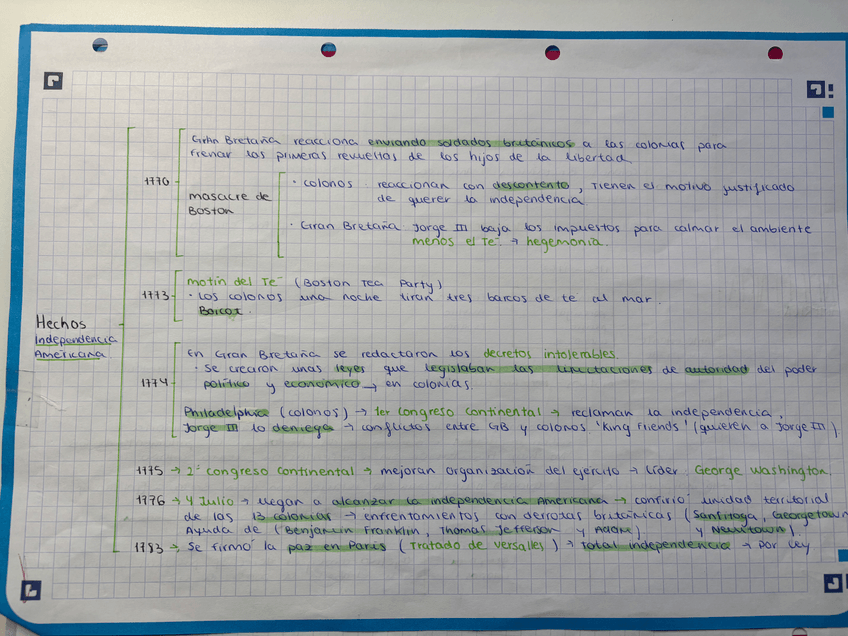 Gran Bretaña reacciona enviando soldados británicos a las colonias para
frenar las primeras revueltas de los hijos de la libertad
1770
masacre de
Boston
· colonos reaccionan con descontento, tienen el motivo justificado
de querer la independencia
· Gran Bretaña Jorge III baja los impuestos para calmar el ambiente
menos el Té → hegemonía.
1773
motín del Té (Boston Tea Party)
· Los colonos una noche tiran tres barcos de te al mar.
Boicot
Hechos
Independencia
Americana
1774
En Gran Bretaña se redactaron los decretos intolerables.
· Se crearon unas leyes que legislaban las limitaciones de autoridad del poder
político y económico → en colonias.
Philadelphia (colonos) → 1er congreso continental → reclaman la independencia,
Jorge III lo deniega → conflictos entre GB y colonos 'King Friends' (quieren a Jorge III)
1775 → 2º congreso continental → mejoran organización del ejercito → Líder: George Washington.
1776 → 4 Julio → llegan a alcanzar la independencia Americana → confirió unidad territorial
de las 13 colonias → enfrentamientos con derrotas británicas (Santitoga, Georgetown
Ayuda de (Benjamin Franklin, Thomas Jefferson y Adam) y Newtown).
1783 → Se firmó la paz en París (Tratado de Versalles) → total independencia → por ley